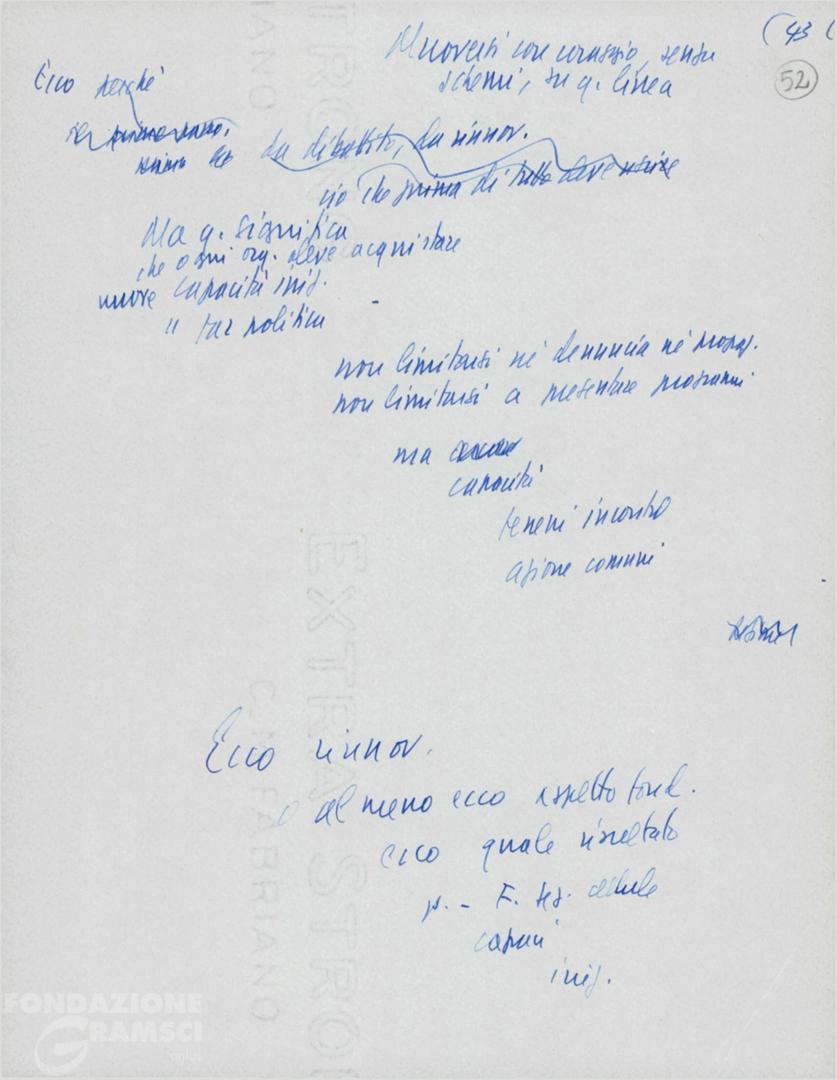 (43(
52
Muoversi con coraggio, senza
schemi, su q. linea
Ecco perché
da dibattito, da rinnov.
ciò che prima di tutto deve uscire
Ma q. significa
che ogni org. deve acquistare
nuove capacità iniz.
" far politica
non limitarsi né denuncia né propag.
non limitarsi a presentare programmi
ma
capacità
terreni incontro
azione comuni
Ecco rinnov.
o almeno ecco aspetto fond.
ecco quale risultato
p. - F. sez. cellule
capaci
iniz.
EXTRA STRONG
C.M. FABRIANO
FONDAZIONE
GRAMSCI
onlus